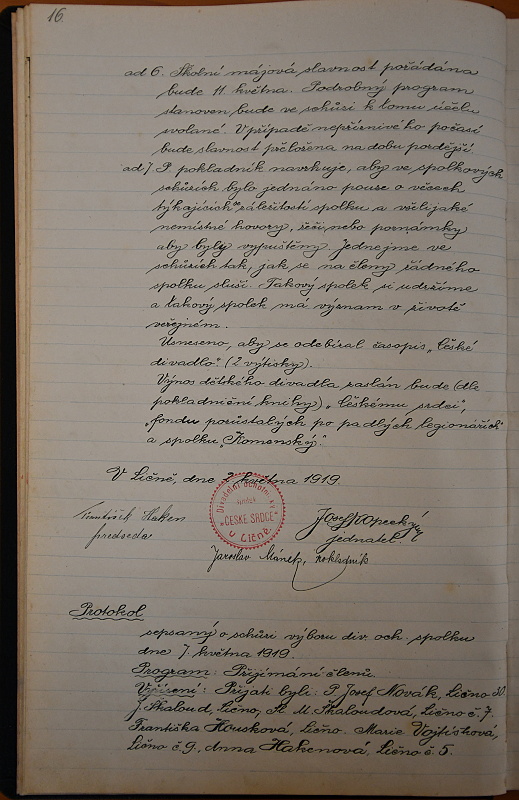 16.
ad 6. Školní májová slavnost pořádána
bude 11. května. Podrobný program
stanoven bude ve schůzi k tomu účelu
svolané. V případě nepříznivého počasí
bude slavnost přeložena na dobu pozdější.
ad 7. P. pokladník navrhuje, aby ve spolkových
schůzích bylo jednáno pouze o věcech
týkajících se záležitostí spolku a všelijaké
nemístné hovory, řeči nebo poznámky
aby byly vypuštěny. Jednejme ve
schůzích tak, jak se na členy řádného
spolku sluší. Takový spolek si udržíme
a takový spolek má význam v životě
veřejném.
Usneseno, aby se odebíral časopis „České
divadlo“. (2 výtisky).
Výnos dětského divadla zaslán bude (dle
pokladniční knihy) „Českému srdci“,
„fondu pozůstalých po padlých legionářích“
a spolku „Komenský“.
V Ličně, dne 2. května 1919.
František Haken
předseda
Divadelní ochot.
spolek
„ČESKÉ SRDCE“
v Ličně.
Josef Kopecký
jednatel.
Jaroslav Mánek, pokladník
Protokol
sepsaný o schůzi výboru div. och. spolku
dne 7. května 1919.
Program: Přijímání členů.
Vyřízení: Přijati byli: P. Josef Novák, Lično 30.
J. Skaloud, Lično, Sl. M. Skaloudová, Lično č. 7.
Františka Housková, Lično. Marie Vojtíshová,
Lično č. 9., Anna Hakenová, Lično č. 5.